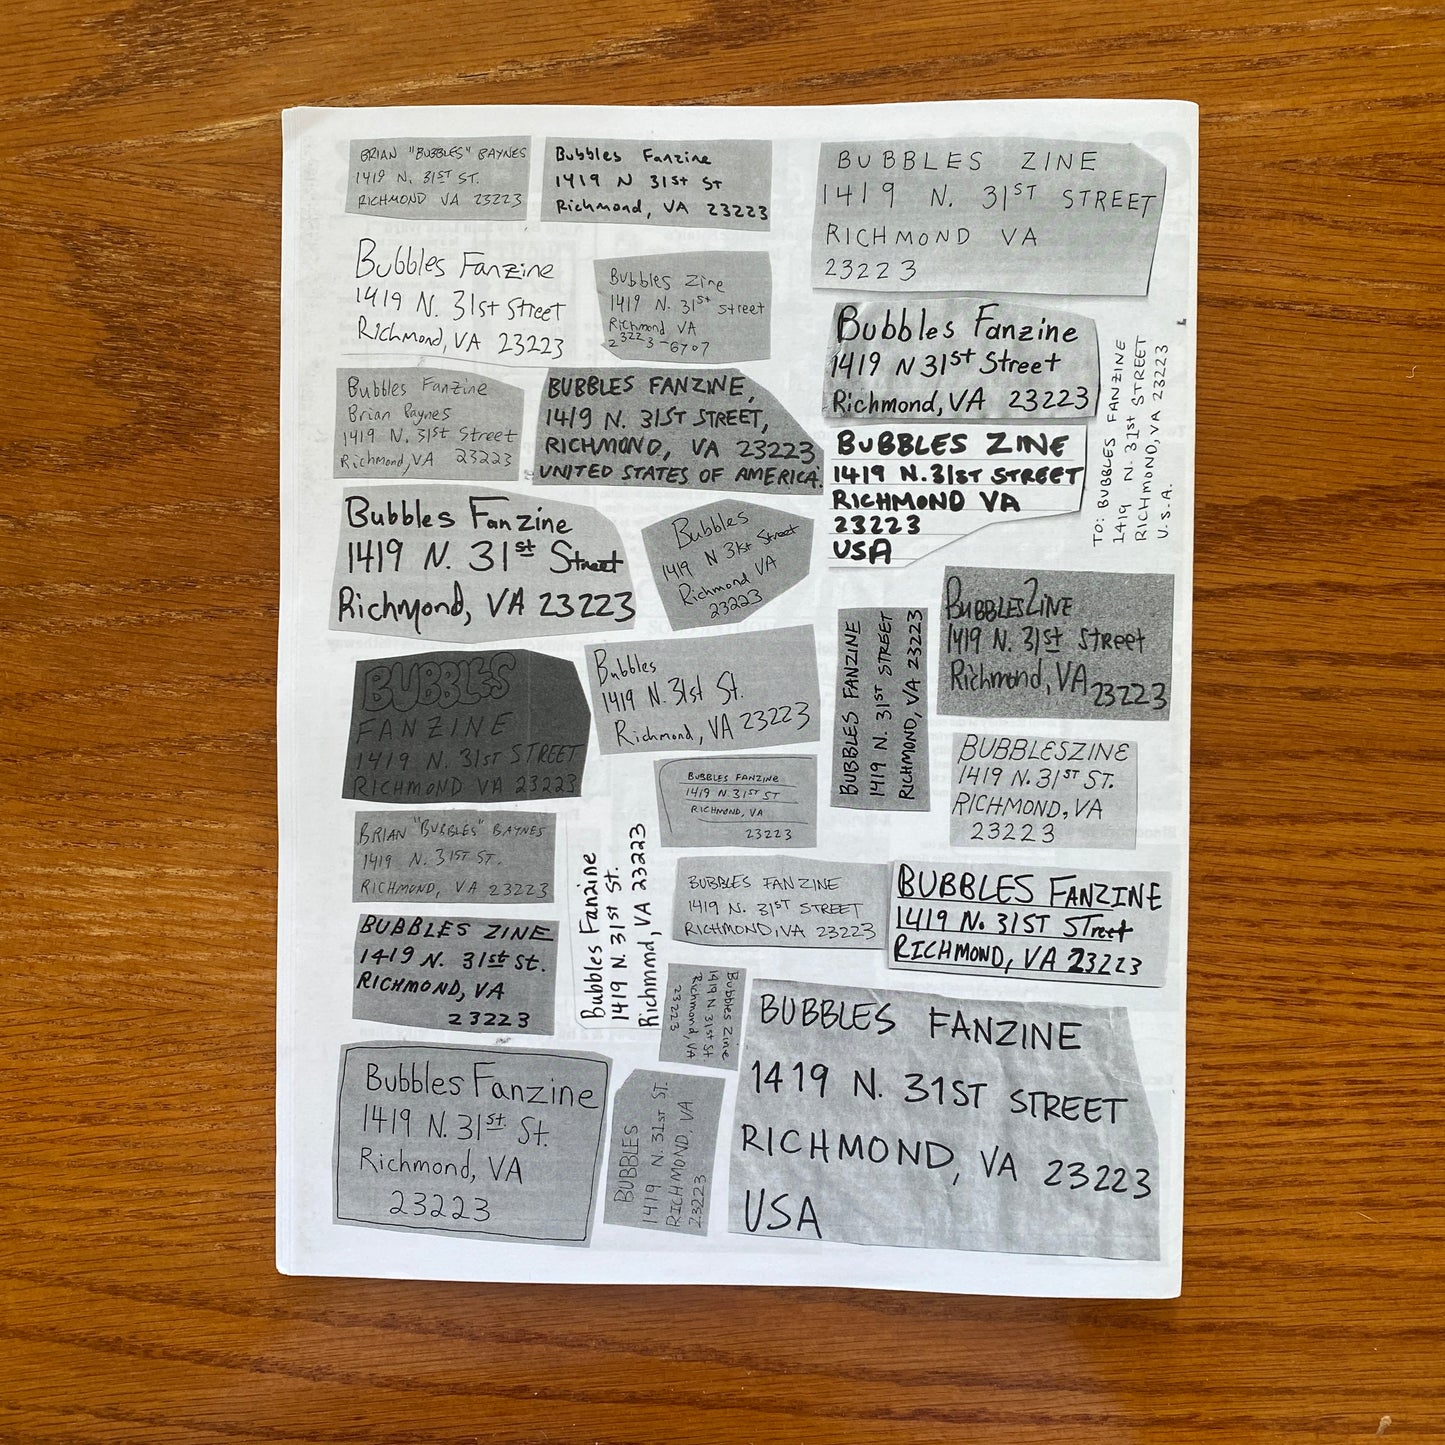 BRIAN "BUBBLES" BAYNES
1419 N. 31ST ST.
RICHMOND VA 23223
Bubbles Fanzine
1419 N 31st St
Richmond, VA 23223
BUBBLES ZINE
1419 N. 31ST STREET
RICHMOND VA
23223
Bubbles Fanzine
1419 N. 31st Street
Richmond, VA 23223
Bubbles Zine
1419 N. 31st Street
Richmond VA
23223-6707
Bubbles Fanzine
1419 N 31st Street
Richmond, VA 23223
TO: BUBBLES FANZINE
1419 N. 31st STREET
RICHMOND, VA 23223
U.S.A.
Bubbles Fanzine
Brian Baynes
1419 N. 31st Street
Richmond, VA 23223
BUBBLES FANZINE,
1419 N. 31ST STREET,
RICHMOND, VA 23223
UNITED STATES OF AMERICA.
BUBBLES ZINE
1419 N. 31ST STREET
RICHMOND VA
23223
USA
Bubbles Fanzine
1419 N. 31st Street
Richmond, VA 23223
Bubbles
1419 N 31st Street
Richmond VA
23223
BUBBLES ZINE
1419 N. 31st Street
Richmond, VA 23223
BUBBLES FANZINE
1419 N. 31ST STREET
RICHMOND, VA 23223
BUBBLES
FANZINE
1419 N. 31ST STREET
RICHMOND VA 23223
Bubbles
1419 N. 31st St.
Richmond, VA 23223
BUBBLES FANZINE
1419 N 31ST ST
RICHMOND, VA
23223
BUBBLESZINE
1419 N. 31ST ST.
RICHMOND, VA
23223
BRIAN "BUBBLES" BAYNES
1419 N. 31ST ST.
RICHMOND, VA 23223
Bubbles Fanzine
1419 N. 31st St.
Richmmd, VA 23223
BUBBLES FANZINE
1419 N. 31ST STREET
RICHMOND, VA 23223
BUBBLES FANZINE
1419 N. 31ST STreet
RICHMOND, VA 23223
BUBBLES ZINE
1419 N. 31st St.
RICHMOND, VA
23223
Bubbles Zine
1419 N. 31st St.
Richmond, VA
23223
BUBBLES FANZINE
1419 N. 31ST STREET
RICHMOND, VA 23223
USA
Bubbles Fanzine
1419 N. 31st St.
Richmond, VA
23223
BUBBLES
1419 N. 31ST ST.
RICHMOND, VA
23223